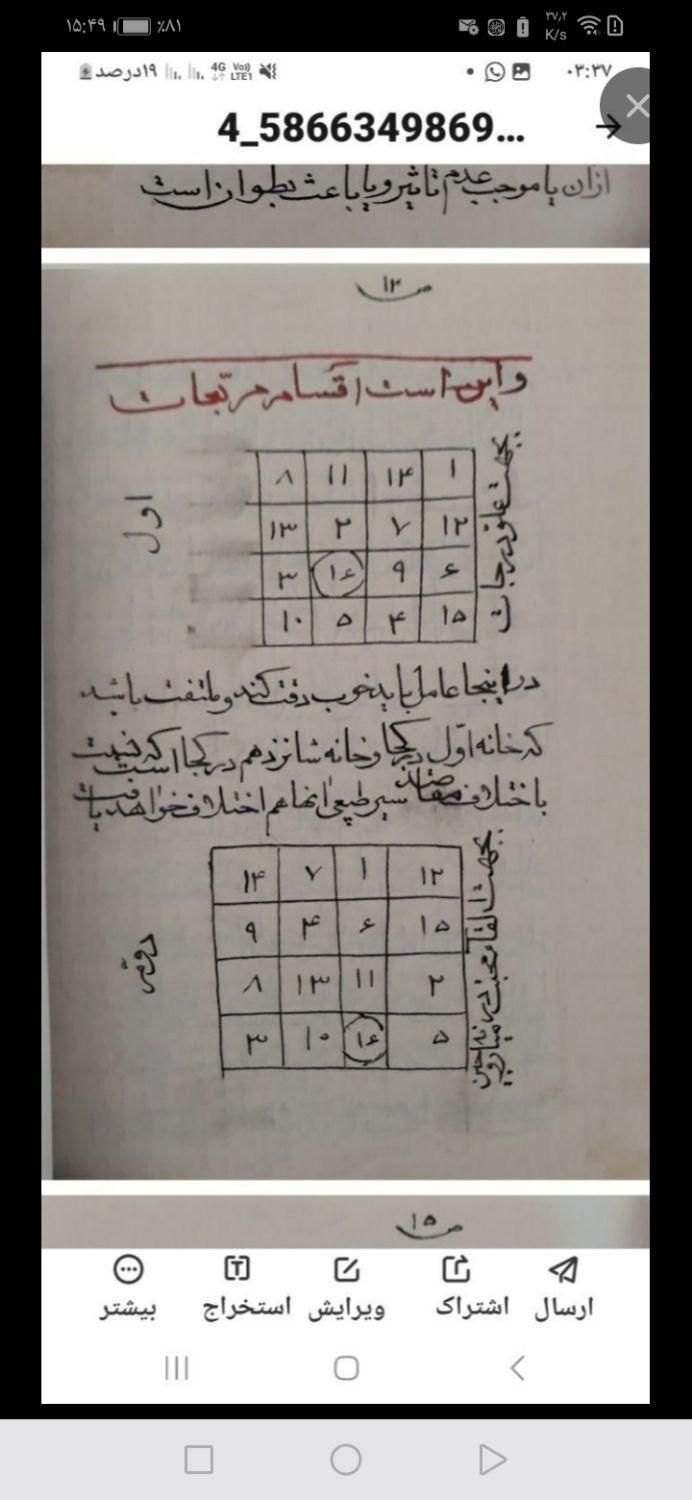 ۱۵:۴۹ ٪۸۱ ۳۷٫۲ K/s
۱۹درصد 4G Vo)) LTE1 ۰۳:۳۷
4_5866349869...
ازان یا موجب عدم تاثیر و یا باعث بطوان است
ص۱۲
و این است اقسام مربعات
بجهت علو درجات
اول
۱ ۱۴ ۱۱ ۸
۱۲ ۷ ۲ ۱۳
۶ ۹ ۱۶ ۳
۱۵ ۴ ۵ ۱۰
در اینجا عامل باید خوب دقت کند و ملتفت باشد
که خانه اوّل در کجا و خانه شانزدهم در کجا است که
با اختلاف مقاصد سیر طبیعی انها هم اختلاف خواهد یافت
بجهت القاء محبت در میانه زوجین
دوّم
۱۲ ۱ ۷ ۱۴
۱۵ ۶ ۴ ۹
۲ ۱۱ ۱۳ ۸
۵ ۱۶ ۱۰ ۳
ص۱۵
ارسال اشتراک ویرایش استخراج بیشتر